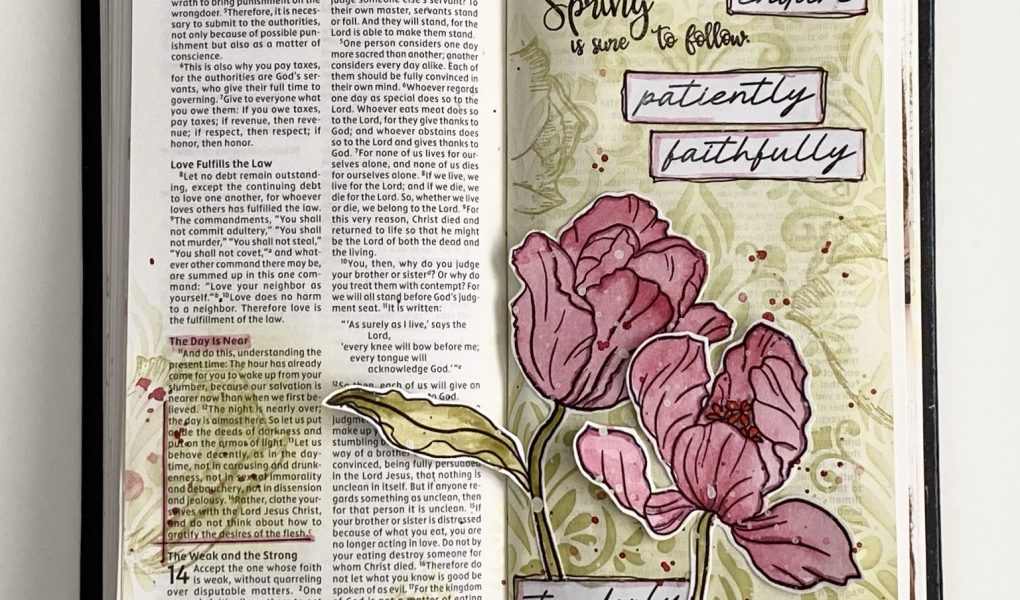 wrath to bring punishment on the
wrongdoer. ⁵Therefore, it is neces-
sary to submit to the authorities,
not only because of possible pun-
ishment but also as a matter of
conscience.
⁶This is also why you pay taxes,
for the authorities are God's ser-
vants, who give their full time to
governing. ⁷Give to everyone what
you owe them: If you owe taxes,
pay taxes; if revenue, then reve-
nue; if respect, then respect; if
honor, then honor.
Love Fulfills the Law
⁸Let no debt remain outstand-
ing, except the continuing debt
to love one another, for whoever
loves others has fulfilled the law.
⁹The commandments, "You shall
not commit adultery," "You shall
not murder," "You shall not steal,"
"You shall not covet,"ᵃ and what-
ever other command there may be,
are summed up in this one com-
mand: "Love your neighbor as
yourself."ᵇ ¹⁰Love does no harm
to a neighbor. Therefore love is
the fulfillment of the law.
The Day Is Near
¹¹And do this, understanding the
present time: The hour has already
come for you to wake up from your
slumber, because our salvation is
nearer now than when we first be-
lieved. ¹²The night is nearly over;
the day is almost here. So let us put
aside the deeds of darkness and
put on the armor of light. ¹³Let us
behave decently, as in the day-
time, not in carousing and drunk-
enness, not in sexual immorality
and debauchery, not in dissension
and jealousy. ¹⁴Rather, clothe your-
selves with the Lord Jesus Christ,
and do not think about how to
gratify the desires of the flesh.ᶜ
The Weak and the Strong
14 Accept the one whose faith
is weak, without quarreling
over disputable matters. ²One
judge someone else's servant? To
their own master, servants stand
or fall. And they will stand, for the
Lord is able to make them stand.
⁵One person considers one day
more sacred than another; another
considers every day alike. Each of
them should be fully convinced in
their own mind. ⁶Whoever regards
one day as special does so to the
Lord. Whoever eats meat does so
to the Lord, for they give thanks to
God; and whoever abstains does
so to the Lord and gives thanks to
God. ⁷For none of us lives for our-
selves alone, and none of us dies
for ourselves alone. ⁸If we live, we
live for the Lord; and if we die, we
die for the Lord. So, whether we live
or die, we belong to the Lord. ⁹For
this very reason, Christ died and
returned to life so that he might
be the Lord of both the dead and
the living.
¹⁰You, then, why do you judge
your brother or sisterᵈ? Or why do
you treat them with contempt? For
we will all stand before God's judg-
ment seat. ¹¹It is written:
"'As surely as I live,' says the
Lord,
'every knee will bow before me;
every tongue will
acknowledge God.'"ᵉ
¹²So then, each of us will give an
to God.
judgment
make up
stumbling b
way of a brother
convinced, being fully persuaded
in the Lord Jesus, that nothing is
unclean in itself. But if anyone re-
gards something as unclean, then
for that person it is unclean. ¹⁵If
your brother or sister is distressed
because of what you eat, you are
no longer acting in love. Do not by
your eating destroy someone for
whom Christ died. ¹⁶Therefore do
not let what you know is good be
spoken of as evil. ¹⁷For the kingdom
of God is not a matter of eating
Spring
is sure to follow.
patiently
faithfully